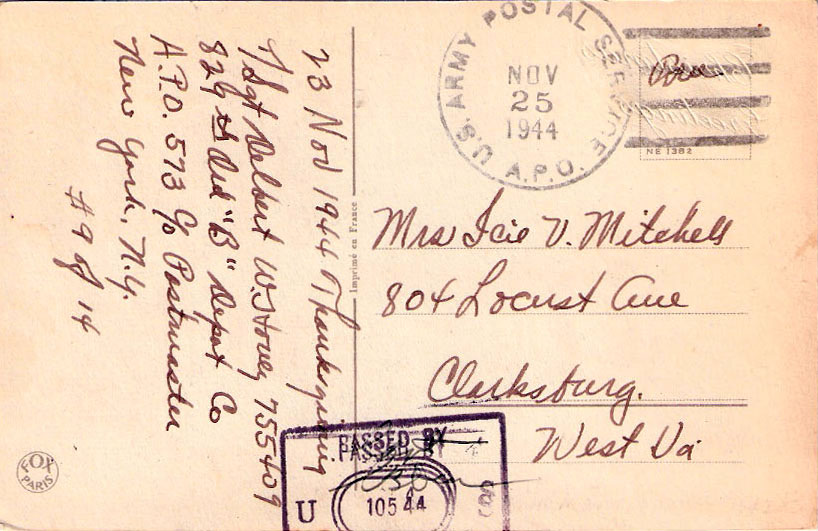 23 Nov 1944 Thanksgiving
T/Sgt Delbert W. Stovey 755409
829th Ord "B" Depot Co
A.P.O. 573 c/o Postmaster
New York, N.Y.
#9 of 14
Imprimé en France
U.S. ARMY POSTAL SERVICE A.P.O.
NOV
25
1944
NE 1382
Mrs Icie V. Mitchell
804 Locust Ave
Clarksburg.
West Va
PASSED BY
U
10544
FOX
PARIS